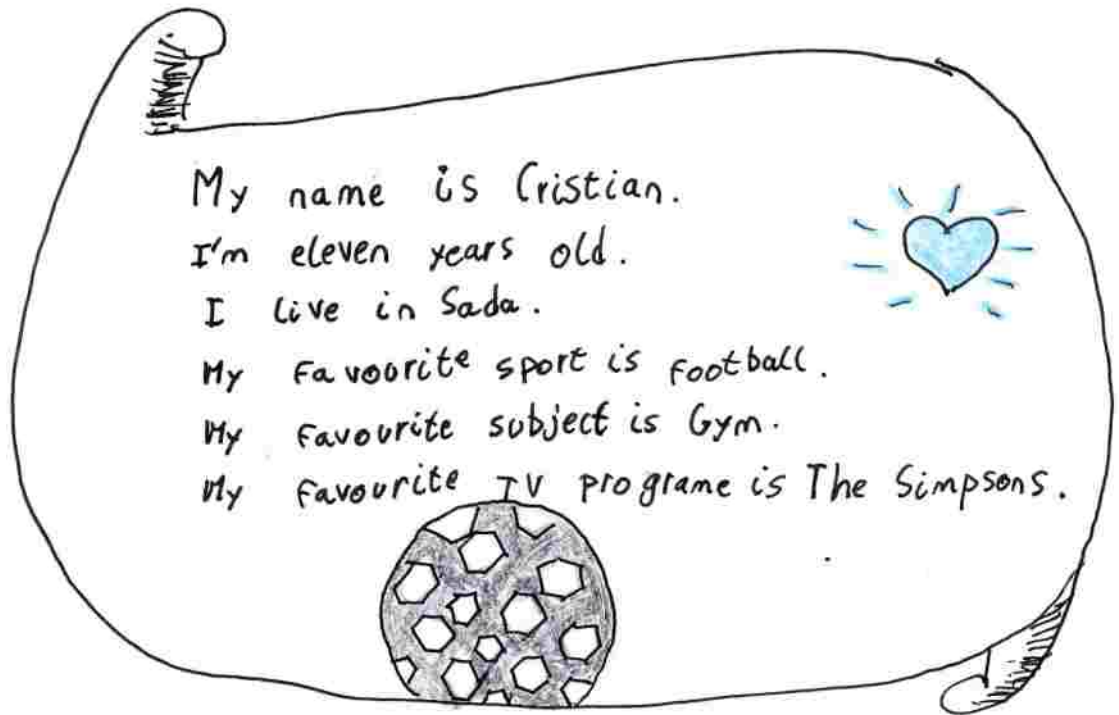 My name is Cristian.
I'm eleven years old.
I live in Sada.
My favourite sport is football.
My favourite subject is Gym.
My favourite TV programe is The Simpsons.